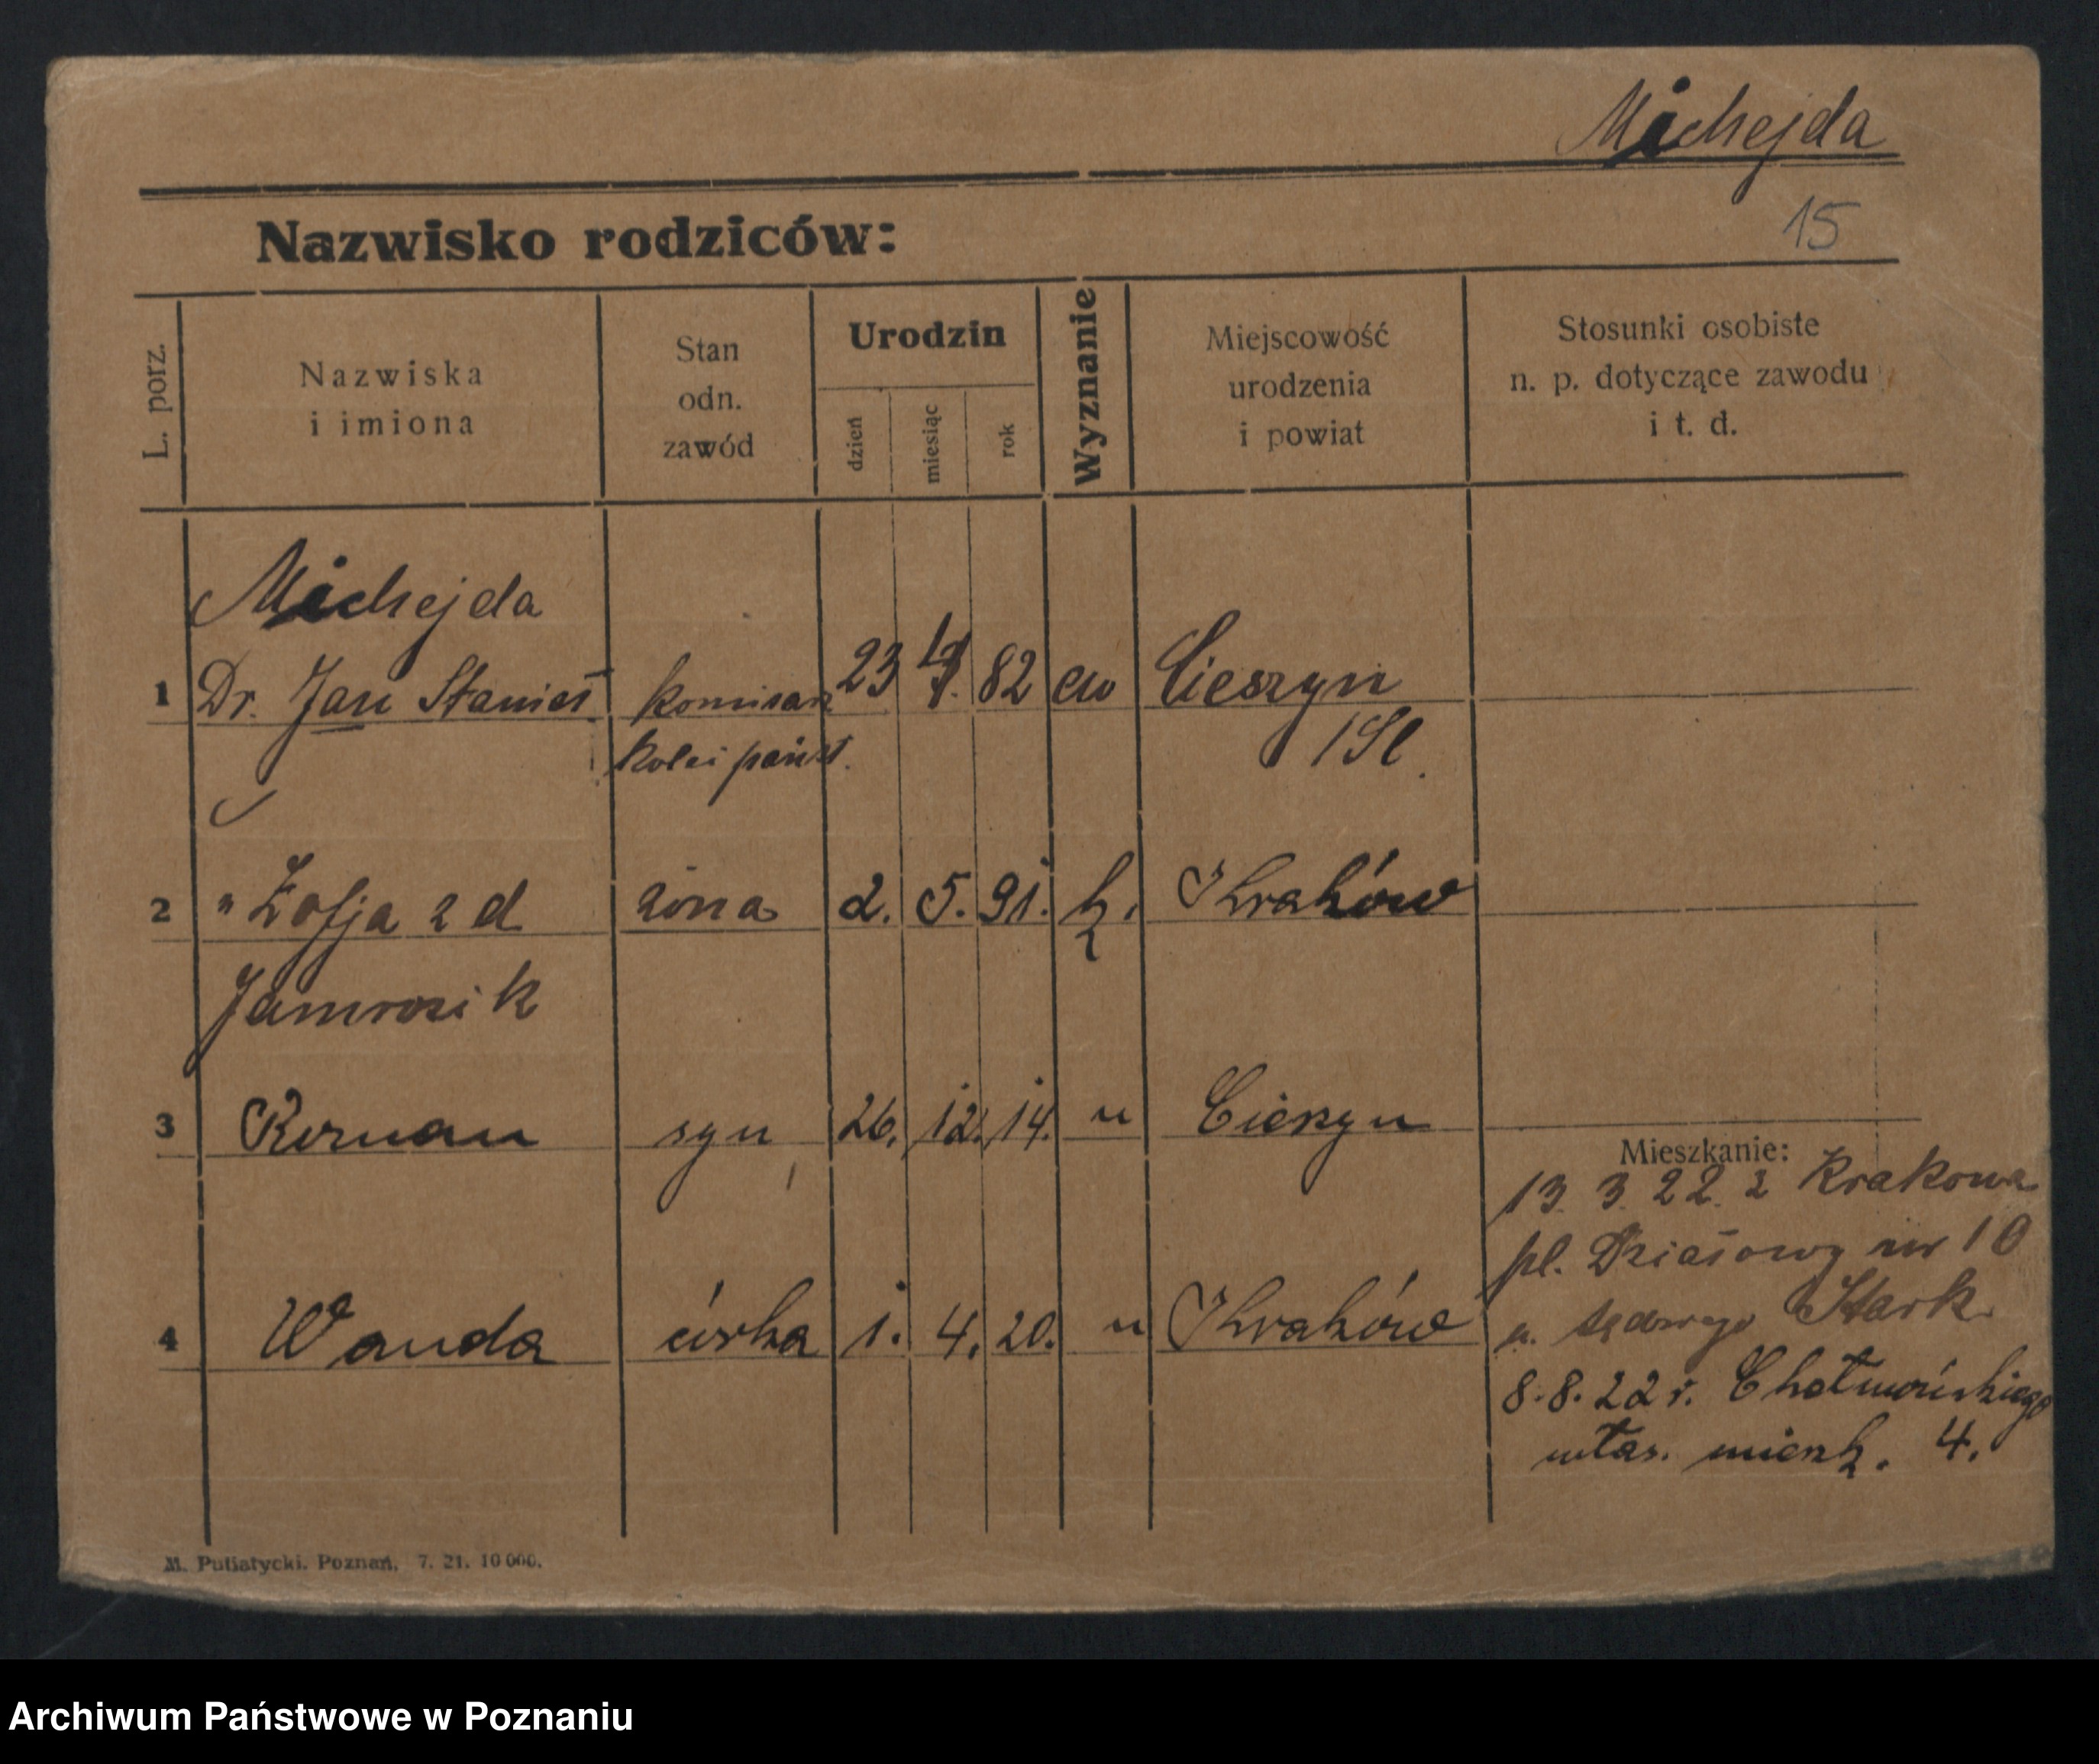 Michejda
15
Nazwisko rodziców:
L. porz.
Nazwiska
i imiona
Stan
odn.
zawód
Urodzin
dzień
miesiąc
rok
Wyznanie
Miejscowość
urodzenia
i powiat
Stosunki osobiste
n. p. dotyczące zawodu
i t. d.
Michejda
1 Dr. Jan komisarz 23 82 ew Cieszyn
kolei państ. /Sl.
2 " Zofja z d żona 2. 5. 91. k. Kraków
Jamrozik
3 Roman syn 26. 12. 14. " Cieszyn
Mieszkanie:
13. 3. 22. z Krakowa
pl. Działowy nr 10
4 Wanda córka 1. 4. 20. " Kraków
u. Stark
8.8.22 r. Chełmońskiego
włas. mieszk. 4.
M. Putiatycki. Poznań, 7. 21. 10 000.
Archiwum Państwowe w Poznaniu